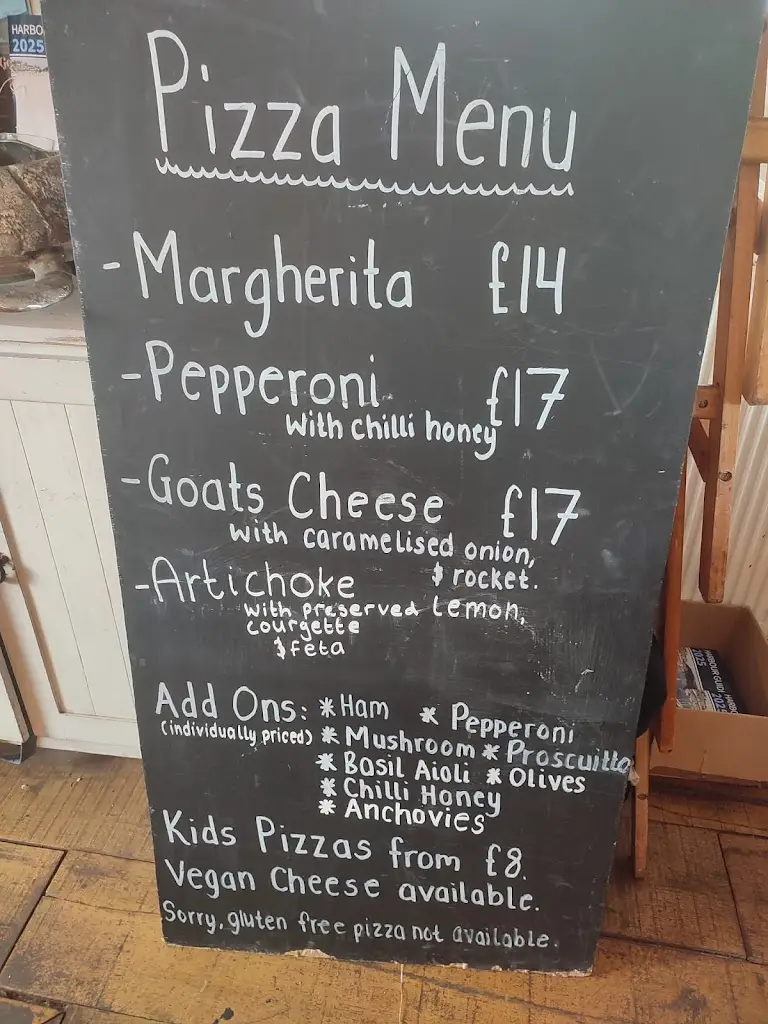 HARBO
2025
Pizza Menu
-Margherita £14
-Pepperoni £17
with chilli honey
-Goats Cheese £17
with caramelised onion,
& rocket.
-Artichoke
with preserved lemon,
courgette
& feta
Add Ons: * Ham * Pepperoni
(individually priced) * Mushroom * Proscuitto
* Basil Aioli * Olives
* Chilli Honey
* Anchovies
Kids Pizzas from £8.
Vegan Cheese available.
Sorry, gluten free pizza not available.
HARBOUR GUIDE
2025